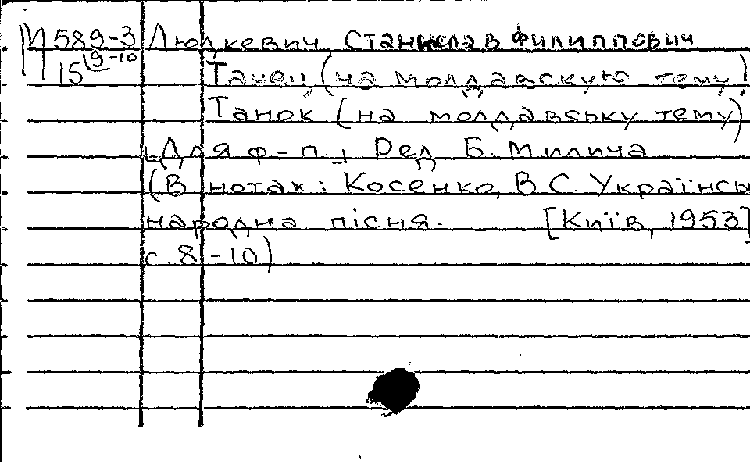 М 589-3 Людкевич, Станислав Филиппович
15 9-10 Танец (на молдавскую тему)
Танок (на молдавську тему)
Для ф-п., Ред. Б. Милича
(В нотах: Косенко, В.С. Українсь
народна пісня. [Київ, 1953]
с. 8-10)